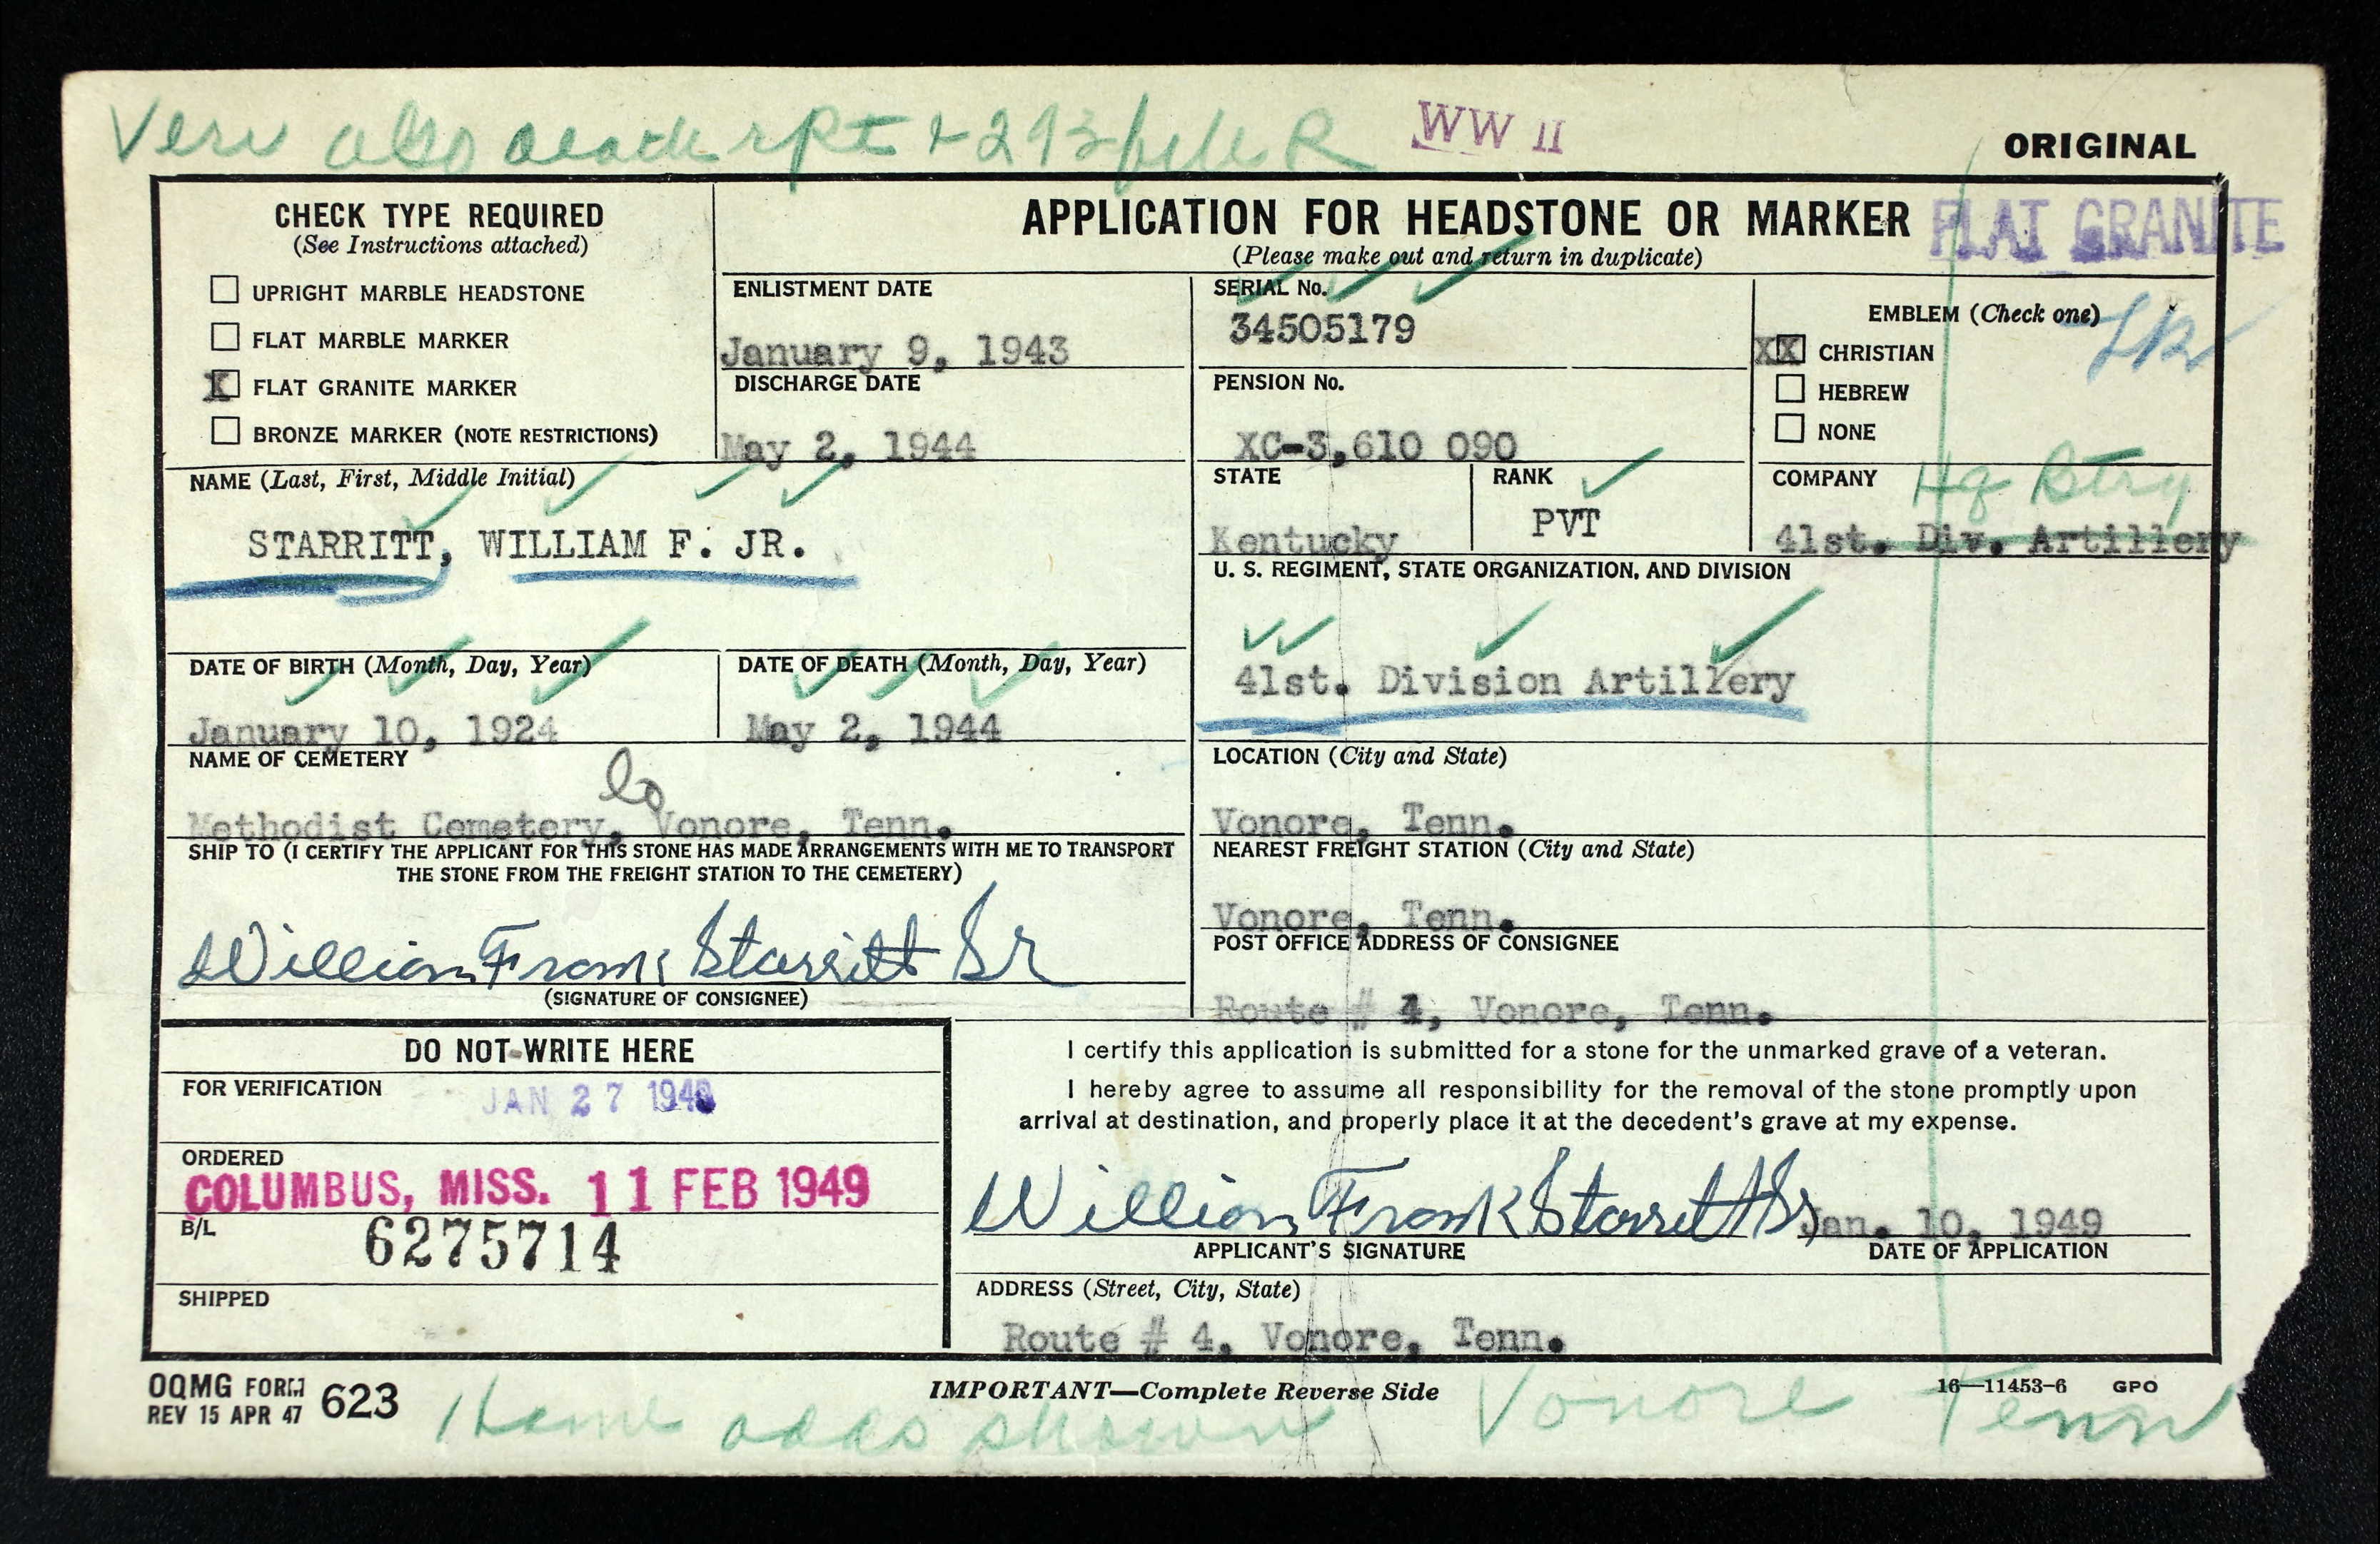 Veri also death rpt & 293 file R
WW II
ORIGINAL
CHECK TYPE REQUIRED
(See Instructions attached)
UPRIGHT MARBLE HEADSTONE
FLAT MARBLE MARKER
X FLAT GRANITE MARKER
BRONZE MARKER (NOTE RESTRICTIONS)
APPLICATION FOR HEADSTONE OR MARKER
FLAT GRANITE
(Please make out and return in duplicate)
ENLISTMENT DATE
January 9, 1943
DISCHARGE DATE
May 2, 1944
SERIAL No.
34505179
PENSION No.
XC-3,610 090
EMBLEM (Check one)
XX CHRISTIAN
HEBREW
NONE
NAME (Last, First, Middle Initial)
STARRITT, WILLIAM F. JR.
STATE
Kentucky
RANK
PVT
COMPANY
Hq Btry
41st. Div. Artillery
U. S. REGIMENT, STATE ORGANIZATION, AND DIVISION
41st. Division Artillery
DATE OF BIRTH (Month, Day, Year)
January 10, 1924
DATE OF DEATH (Month, Day, Year)
May 2, 1944
NAME OF CEMETERY
Methodist Cemetery, Vonore, Tenn.
LOCATION (City and State)
Vonore, Tenn.
SHIP TO (I CERTIFY THE APPLICANT FOR THIS STONE HAS MADE ARRANGEMENTS WITH ME TO TRANSPORT
THE STONE FROM THE FREIGHT STATION TO THE CEMETERY)
William Frank Starritt Sr
(SIGNATURE OF CONSIGNEE)
NEAREST FREIGHT STATION (City and State)
Vonore, Tenn.
POST OFFICE ADDRESS OF CONSIGNEE
Route # 4, Vonore, Tenn.
DO NOT WRITE HERE
FOR VERIFICATION
JAN 27 1949
ORDERED
COLUMBUS, MISS. 11 FEB 1949
B/L
6275714
SHIPPED
I certify this application is submitted for a stone for the unmarked grave of a veteran.
I hereby agree to assume all responsibility for the removal of the stone promptly upon
arrival at destination, and properly place it at the decedent's grave at my expense.
William Frank Starritt Sr Jan. 10, 1949
APPLICANT'S SIGNATURE
DATE OF APPLICATION
ADDRESS (Street, City, State)
Route # 4, Vonore, Tenn.
OQMG FORM 623
REV 15 APR 47
IMPORTANT—Complete Reverse Side
16—11453-6 GPO
Home adds shown Vonore Tenn